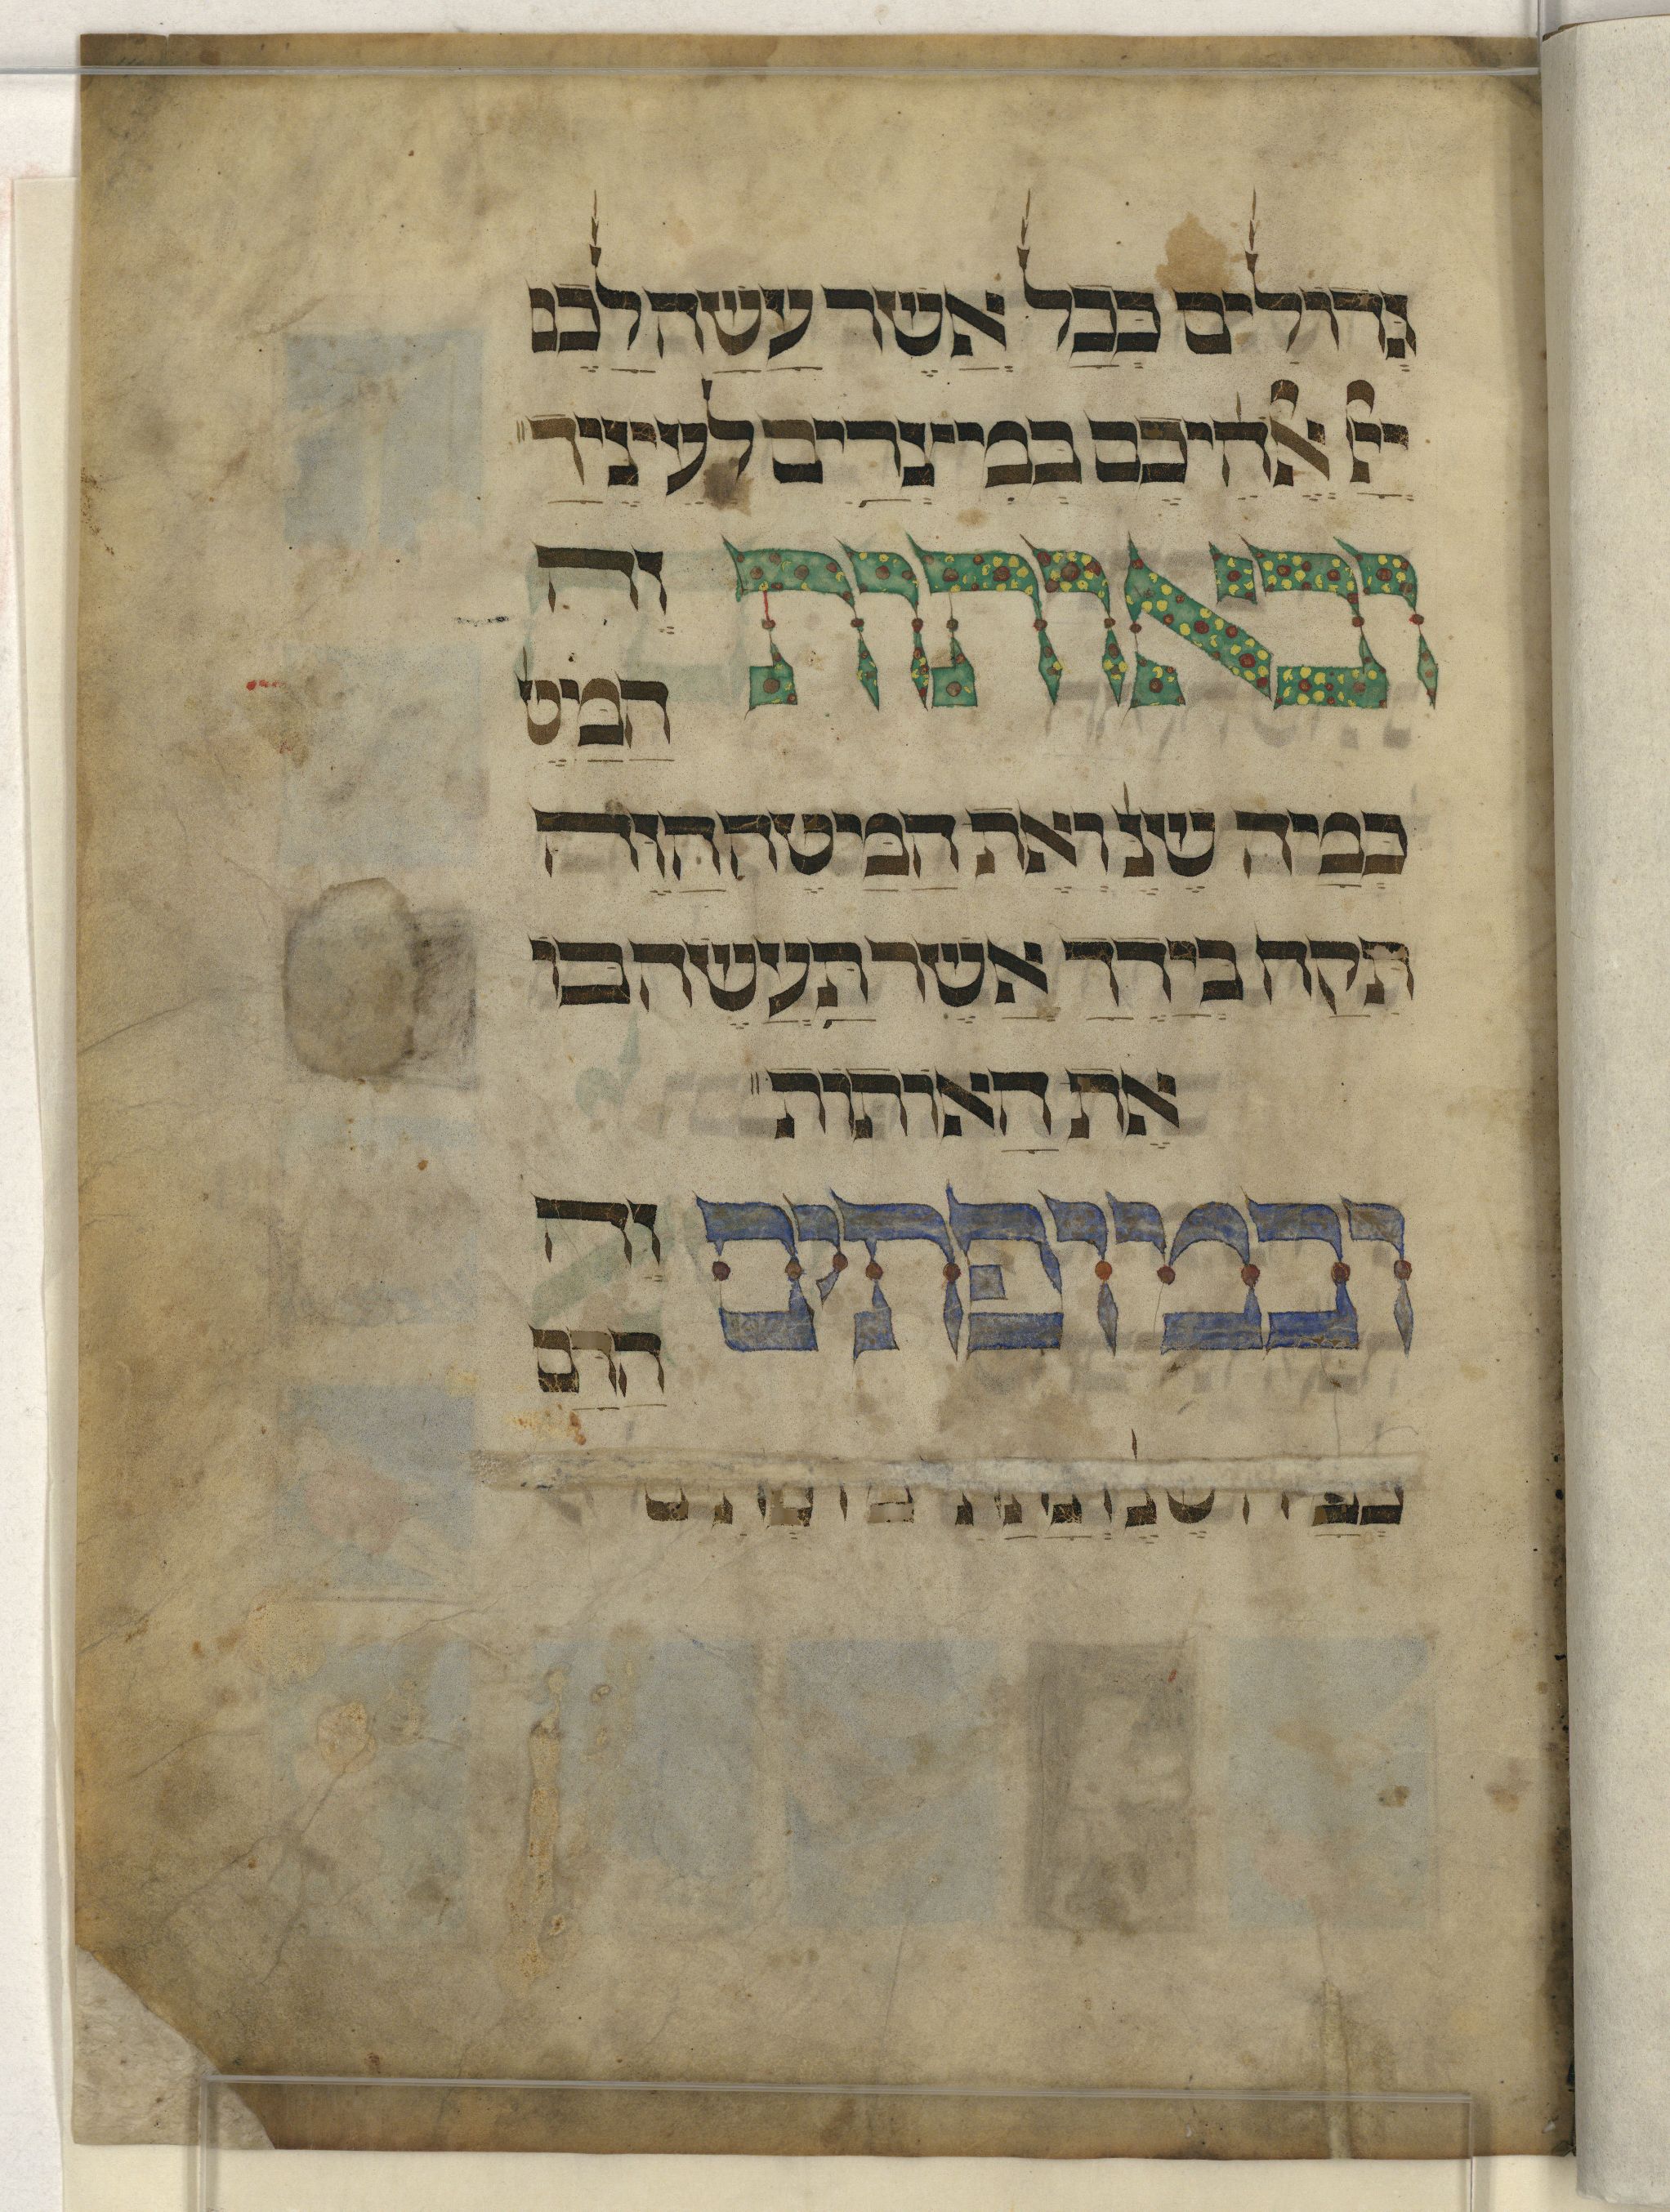 גדולים ככל אשר עשה לכם
ייי אלהיכם במצרים לעיניך״
ובאותות זה
המט
כמה שנ׳ ואת המטה הזה
תקח בידך אשר תעשה בו
את האותות״
ובמופתים זה
הדם
כמה שנ׳ ונתתי מופתים